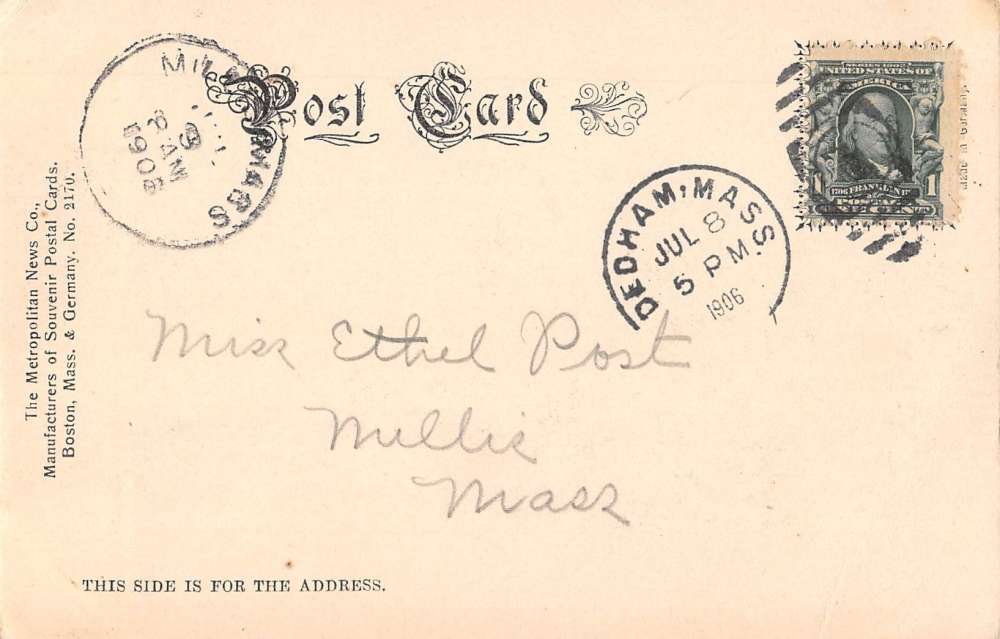 Post Card
MASS
8 AM
1906
SERIES 1902
UNITED STATES OF
AMERICA
1706 FRANKLIN
1 1
POSTAGE
ONE CENT
Made in Germany.
DEDHAM, MASS.
JUL 8
5 PM
1906
The Metropolitan News Co.,
Manufacturers of Souvenir Postal Cards.
Boston, Mass. & Germany. No. 2170.
Miss Ethel Post
Millis
Mass
THIS SIDE IS FOR THE ADDRESS.